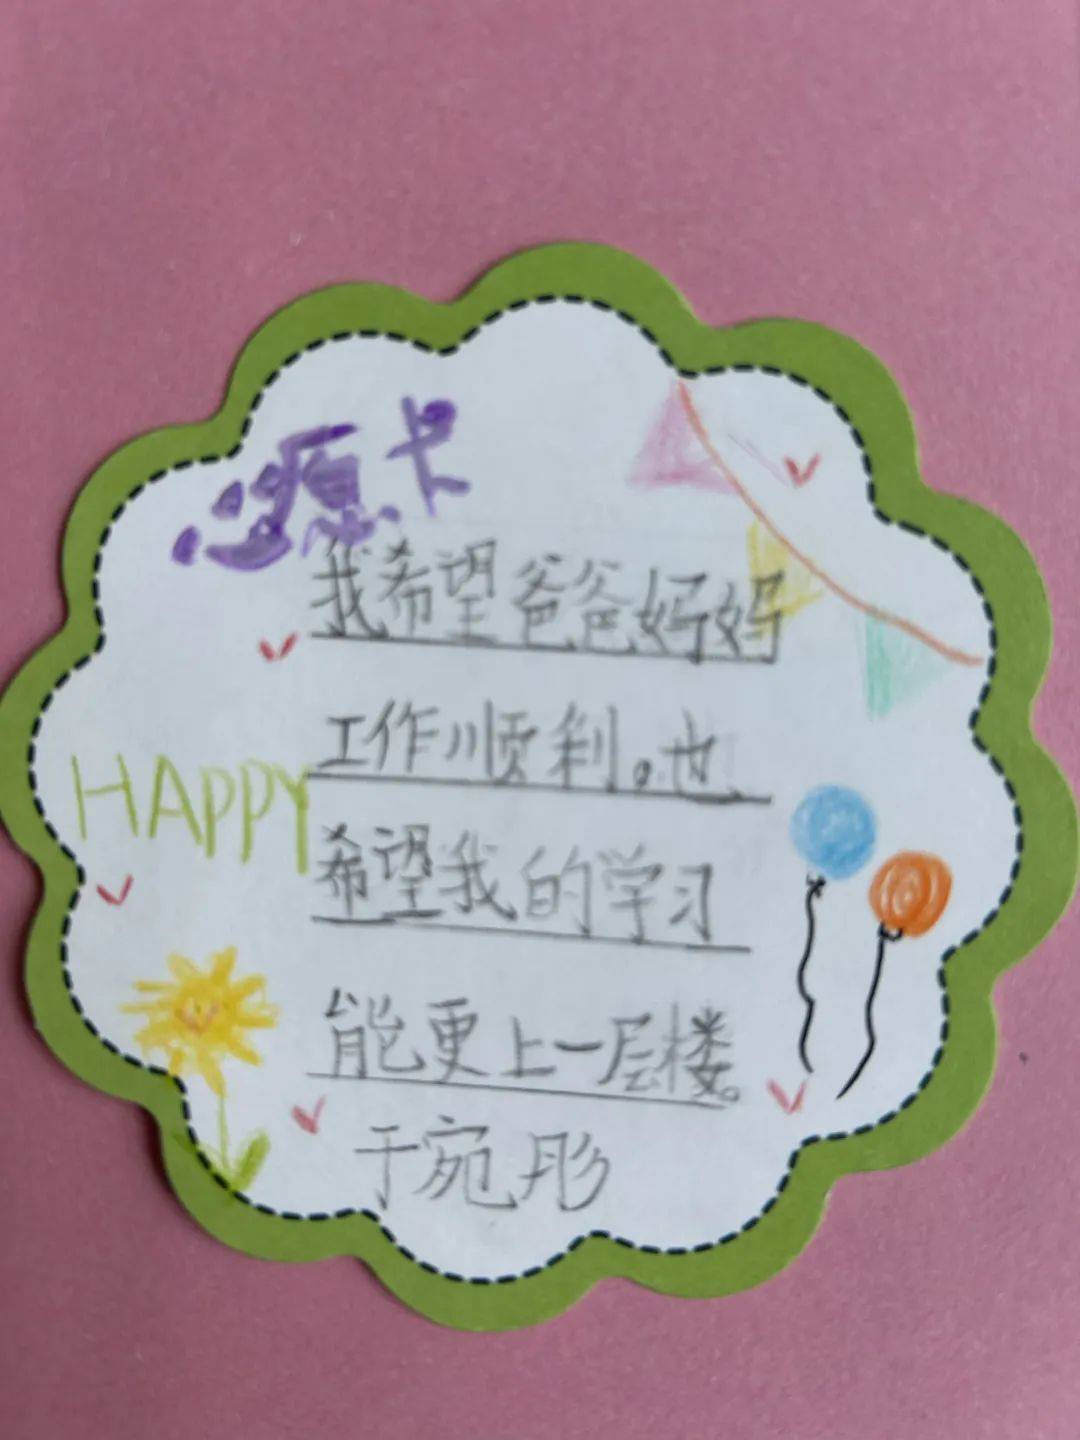 心愿卡
我希望爸爸妈妈
工作顺利。也
HAPPY
希望我的学习
能更上一层楼。
于宛彤